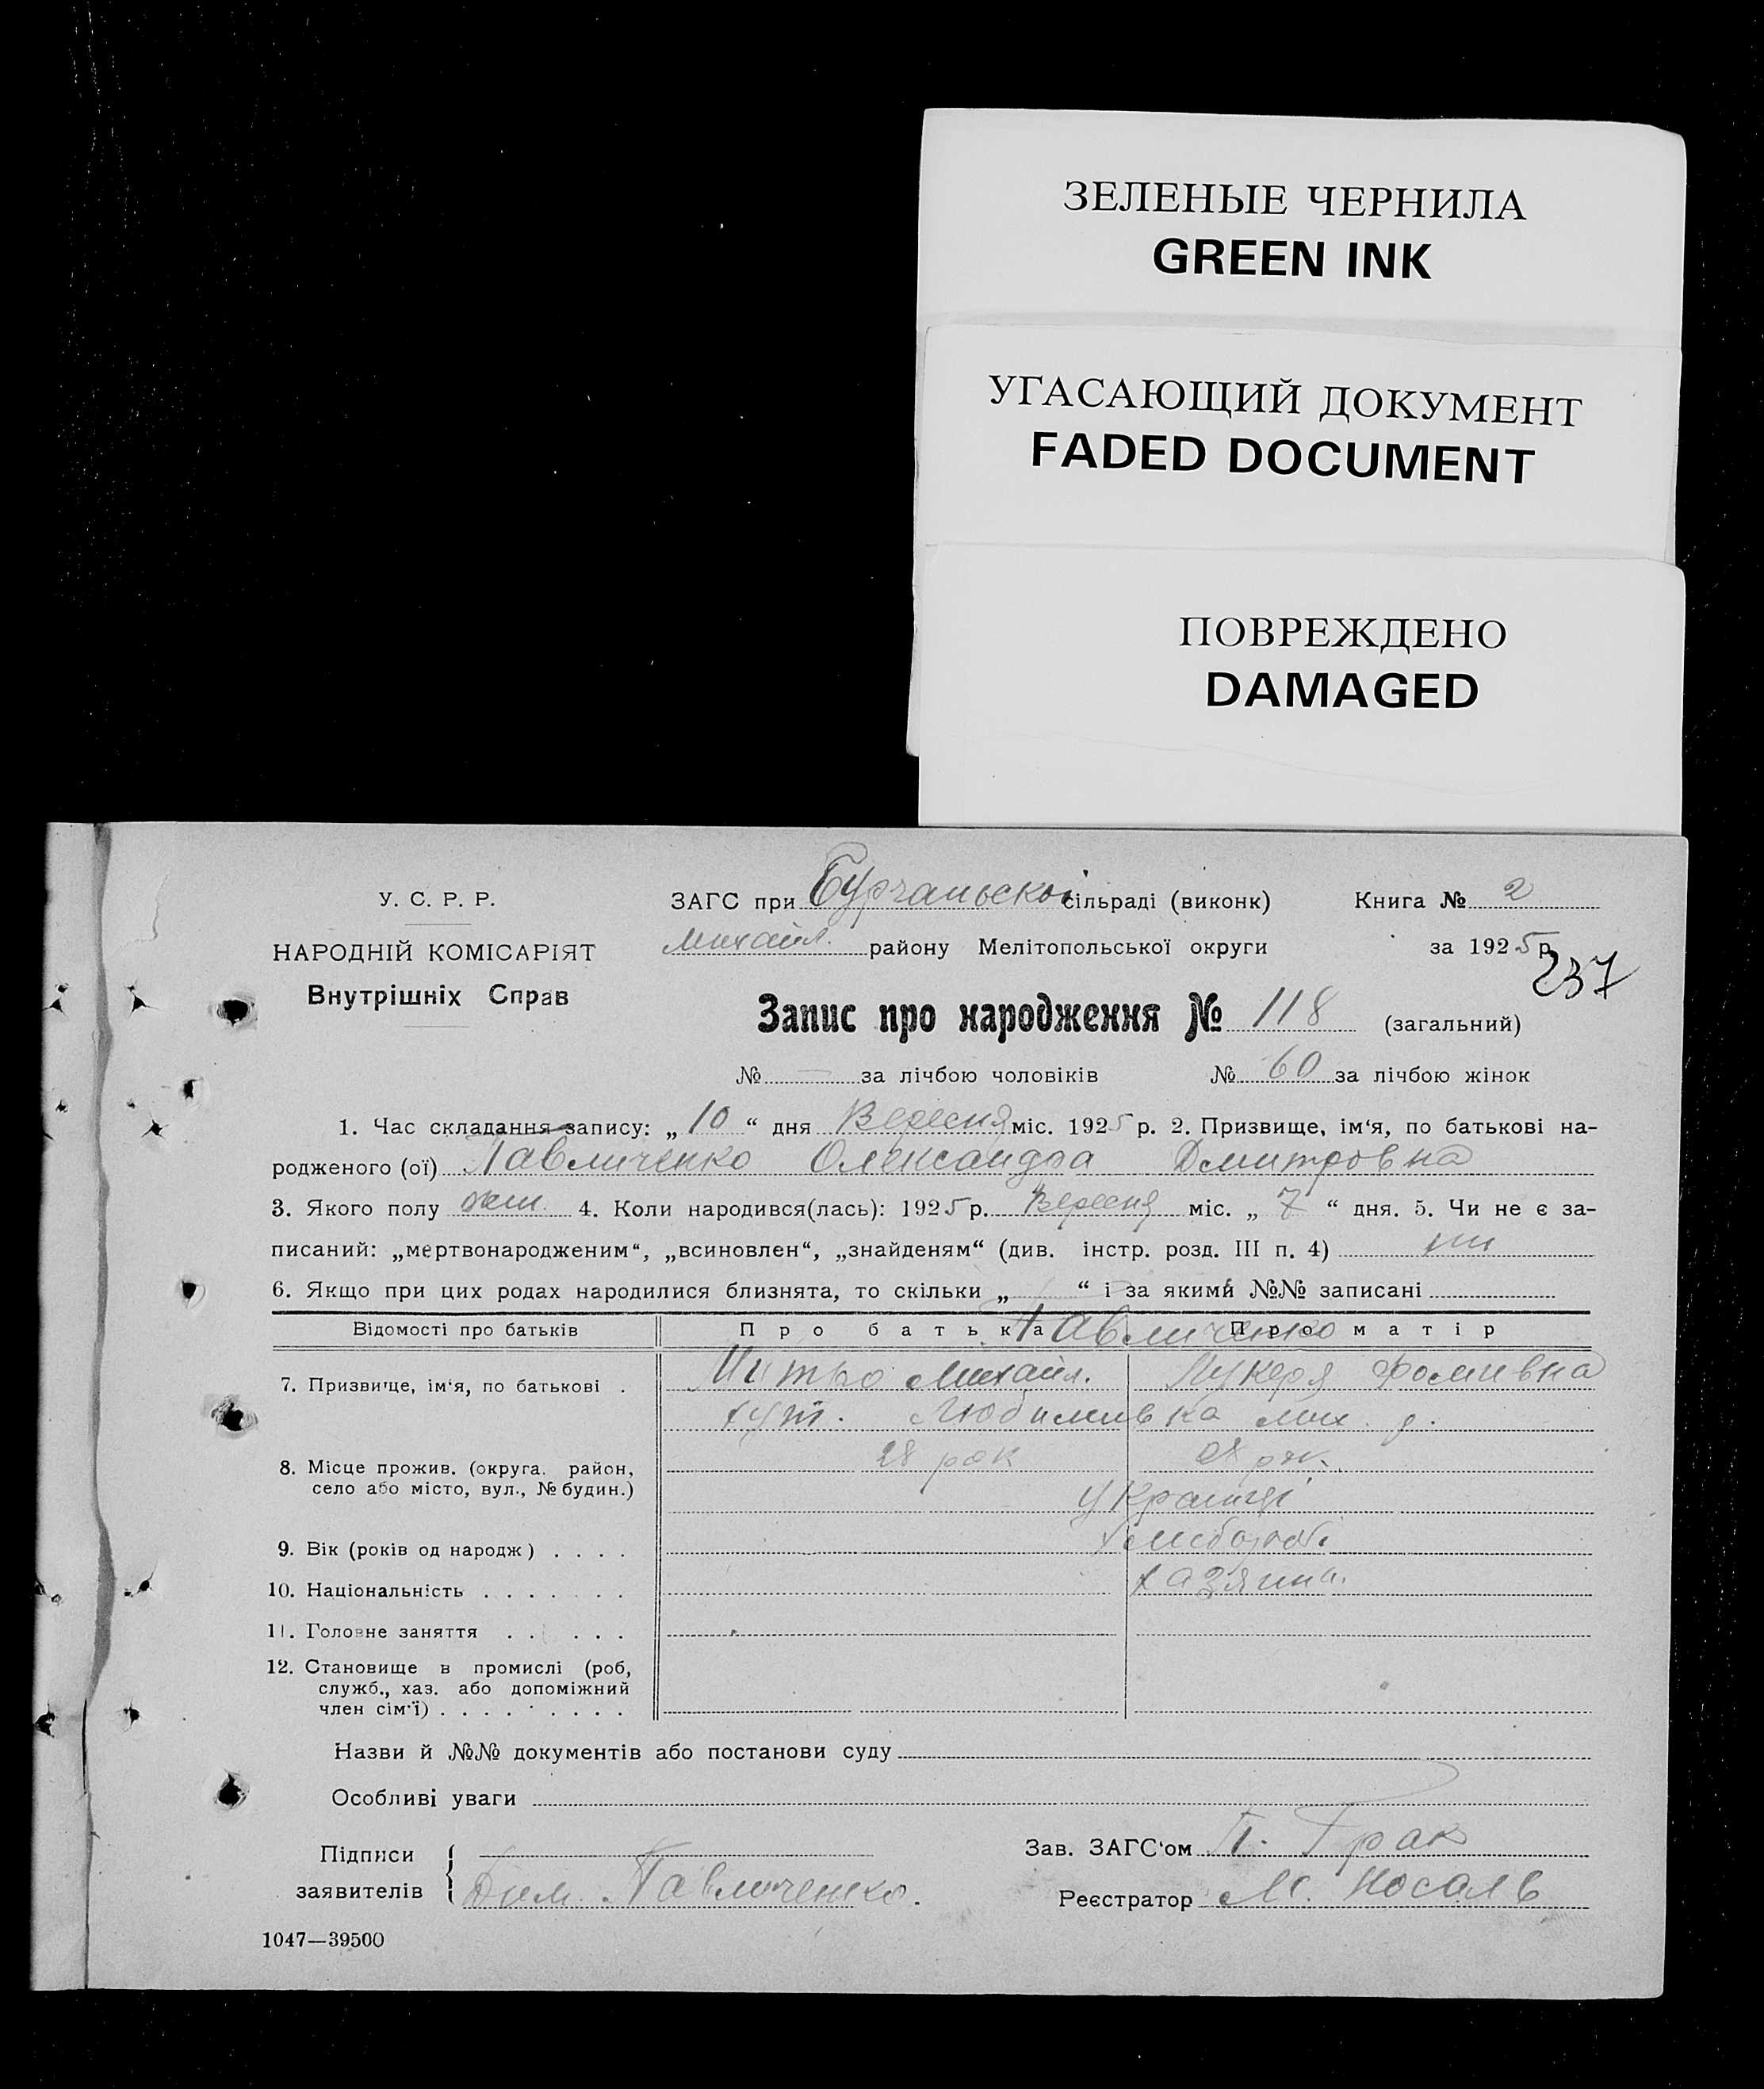 ЗЕЛЕНЫЕ ЧЕРНИЛА
GREEN INK
УГАСАЮЩИЙ ДОКУМЕНТ
FADED DOCUMENT
ПОВРЕЖДЕНО
DAMAGED
У. С. Р. Р.
НАРОДНІЙ КОМІСАРІЯТ
Внутрішніх Справ
ЗАГС при сільраді (виконк) Книга № 2
Михайл. району Мелітопольської округи за 1925 р.
237
Запис про народження № 118 (загальний)
№ — за лічбою чоловіків № 60 за лічбою жінок
1. Час складання запису: „ 10 “ дня Вересня міс. 1925 р. 2. Призвище, ім‘я, по батькові на-
родженого (ої) Павличенко Олександра Дмитровна
3. Якого полу жін. 4. Коли народився(лась): 1925 р. Вересня міс. „ 7 “ дня. 5. Чи не є за-
писаний: „мертвонародженим“, „всиновлен“, „знайденям“ (див. інстр. розд. III п. 4) ни
6. Якщо при цих родах народилися близнята, то скільки „ “ і за якими №№ записані
Відомості про батьків Про батька Про матір
Павличенко
7. Призвище, ім‘я, по батькові . Михайл. Лукеря Фомивна
хут. Любимивка мих. р.
8. Місце прожив. (округа, район,
село або місто, вул., № будин.)
28 рок 28 рок.
Украинці
9. Вік (років од народж) . . . .
10. Національність . . . . . . . хазяин.
11. Головне заняття . . . . . .
12. Становище в промислі (роб,
служб., хаз. або допоміжний
член сім‘ї) . . . . . . . . .
Назви й №№ документів або постанови суду
Особливі уваги
Підписи
заявителів Дим. Павличенко.
Зав. ЗАГС‘ом П. Грак
Реєстратор М. Носаль
1047—39500